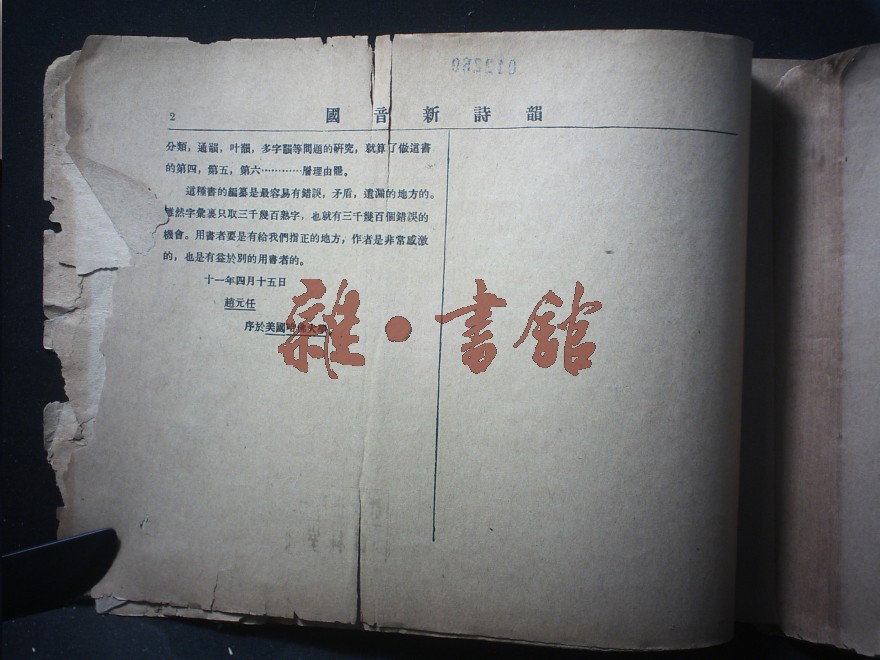 012280
2
國音新詩韻
分類，通韻，叶韻，多字韻等問題的研究，就算了做這書
的第四，第五，第六…………層理由罷。
這種書的編纂是最容易有錯誤，矛盾，遺漏的地方的。
雖然字彙裏只取三千幾百熟字，也就有三千幾百個錯誤的
機會。用書者要是有給我們指正的地方，作者是非常感激
的，也是有益於別的用書者的。
十一年四月十五日
趙元任
序於美國哈佛大學。
雜·書館